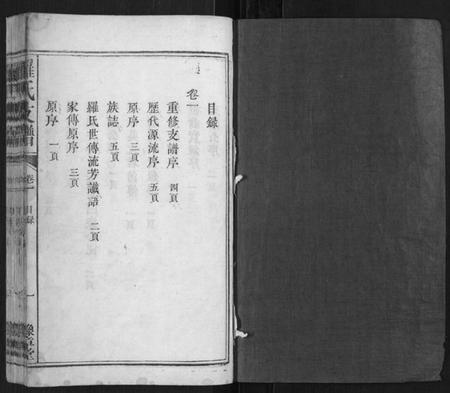 目錄
卷一
重修支譜序 四頁
歷代源流序 五頁
原序 三頁
族誌 五頁
羅氏世傳流芳讖語 二頁
家傳原序 三頁
原序 一頁
羅氏支譜
卷一 目錄
一
豫章堂